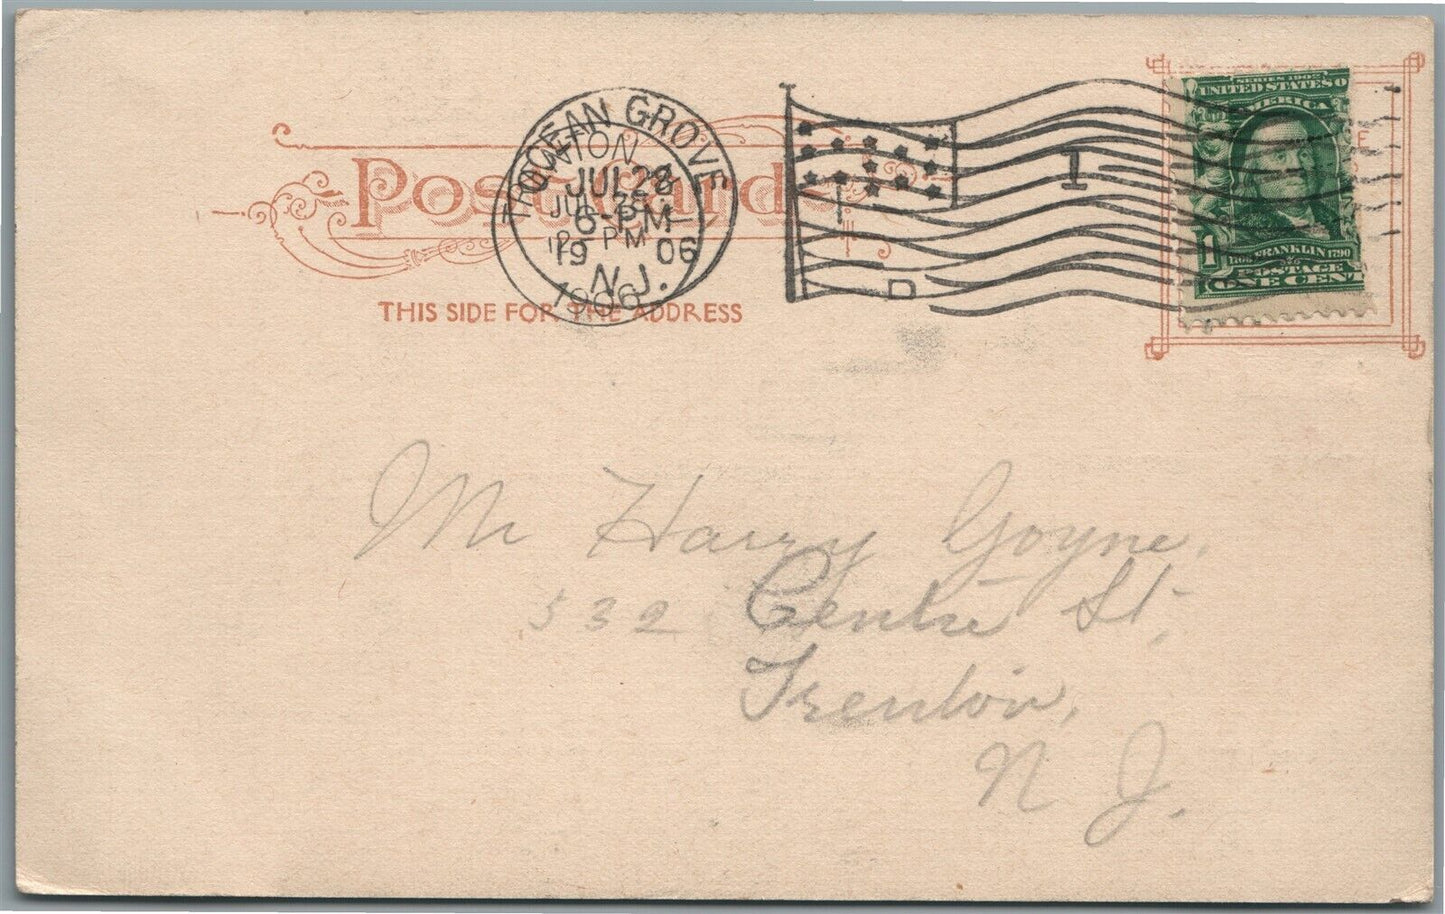 Post Card
THIS SIDE FOR THE ADDRESS
OCEAN GROVE
JUL 28
6-PM
19 06
N.J.
TRENTON
JUL
PM
1906
1
D
SERIES 1902
UNITED STATES O
AMERICA
1
FRANKLIN 1790
POSTAGE
ONE CENT
Mr Harry Goyne,
532 Centre St,
Trenton,
N J.